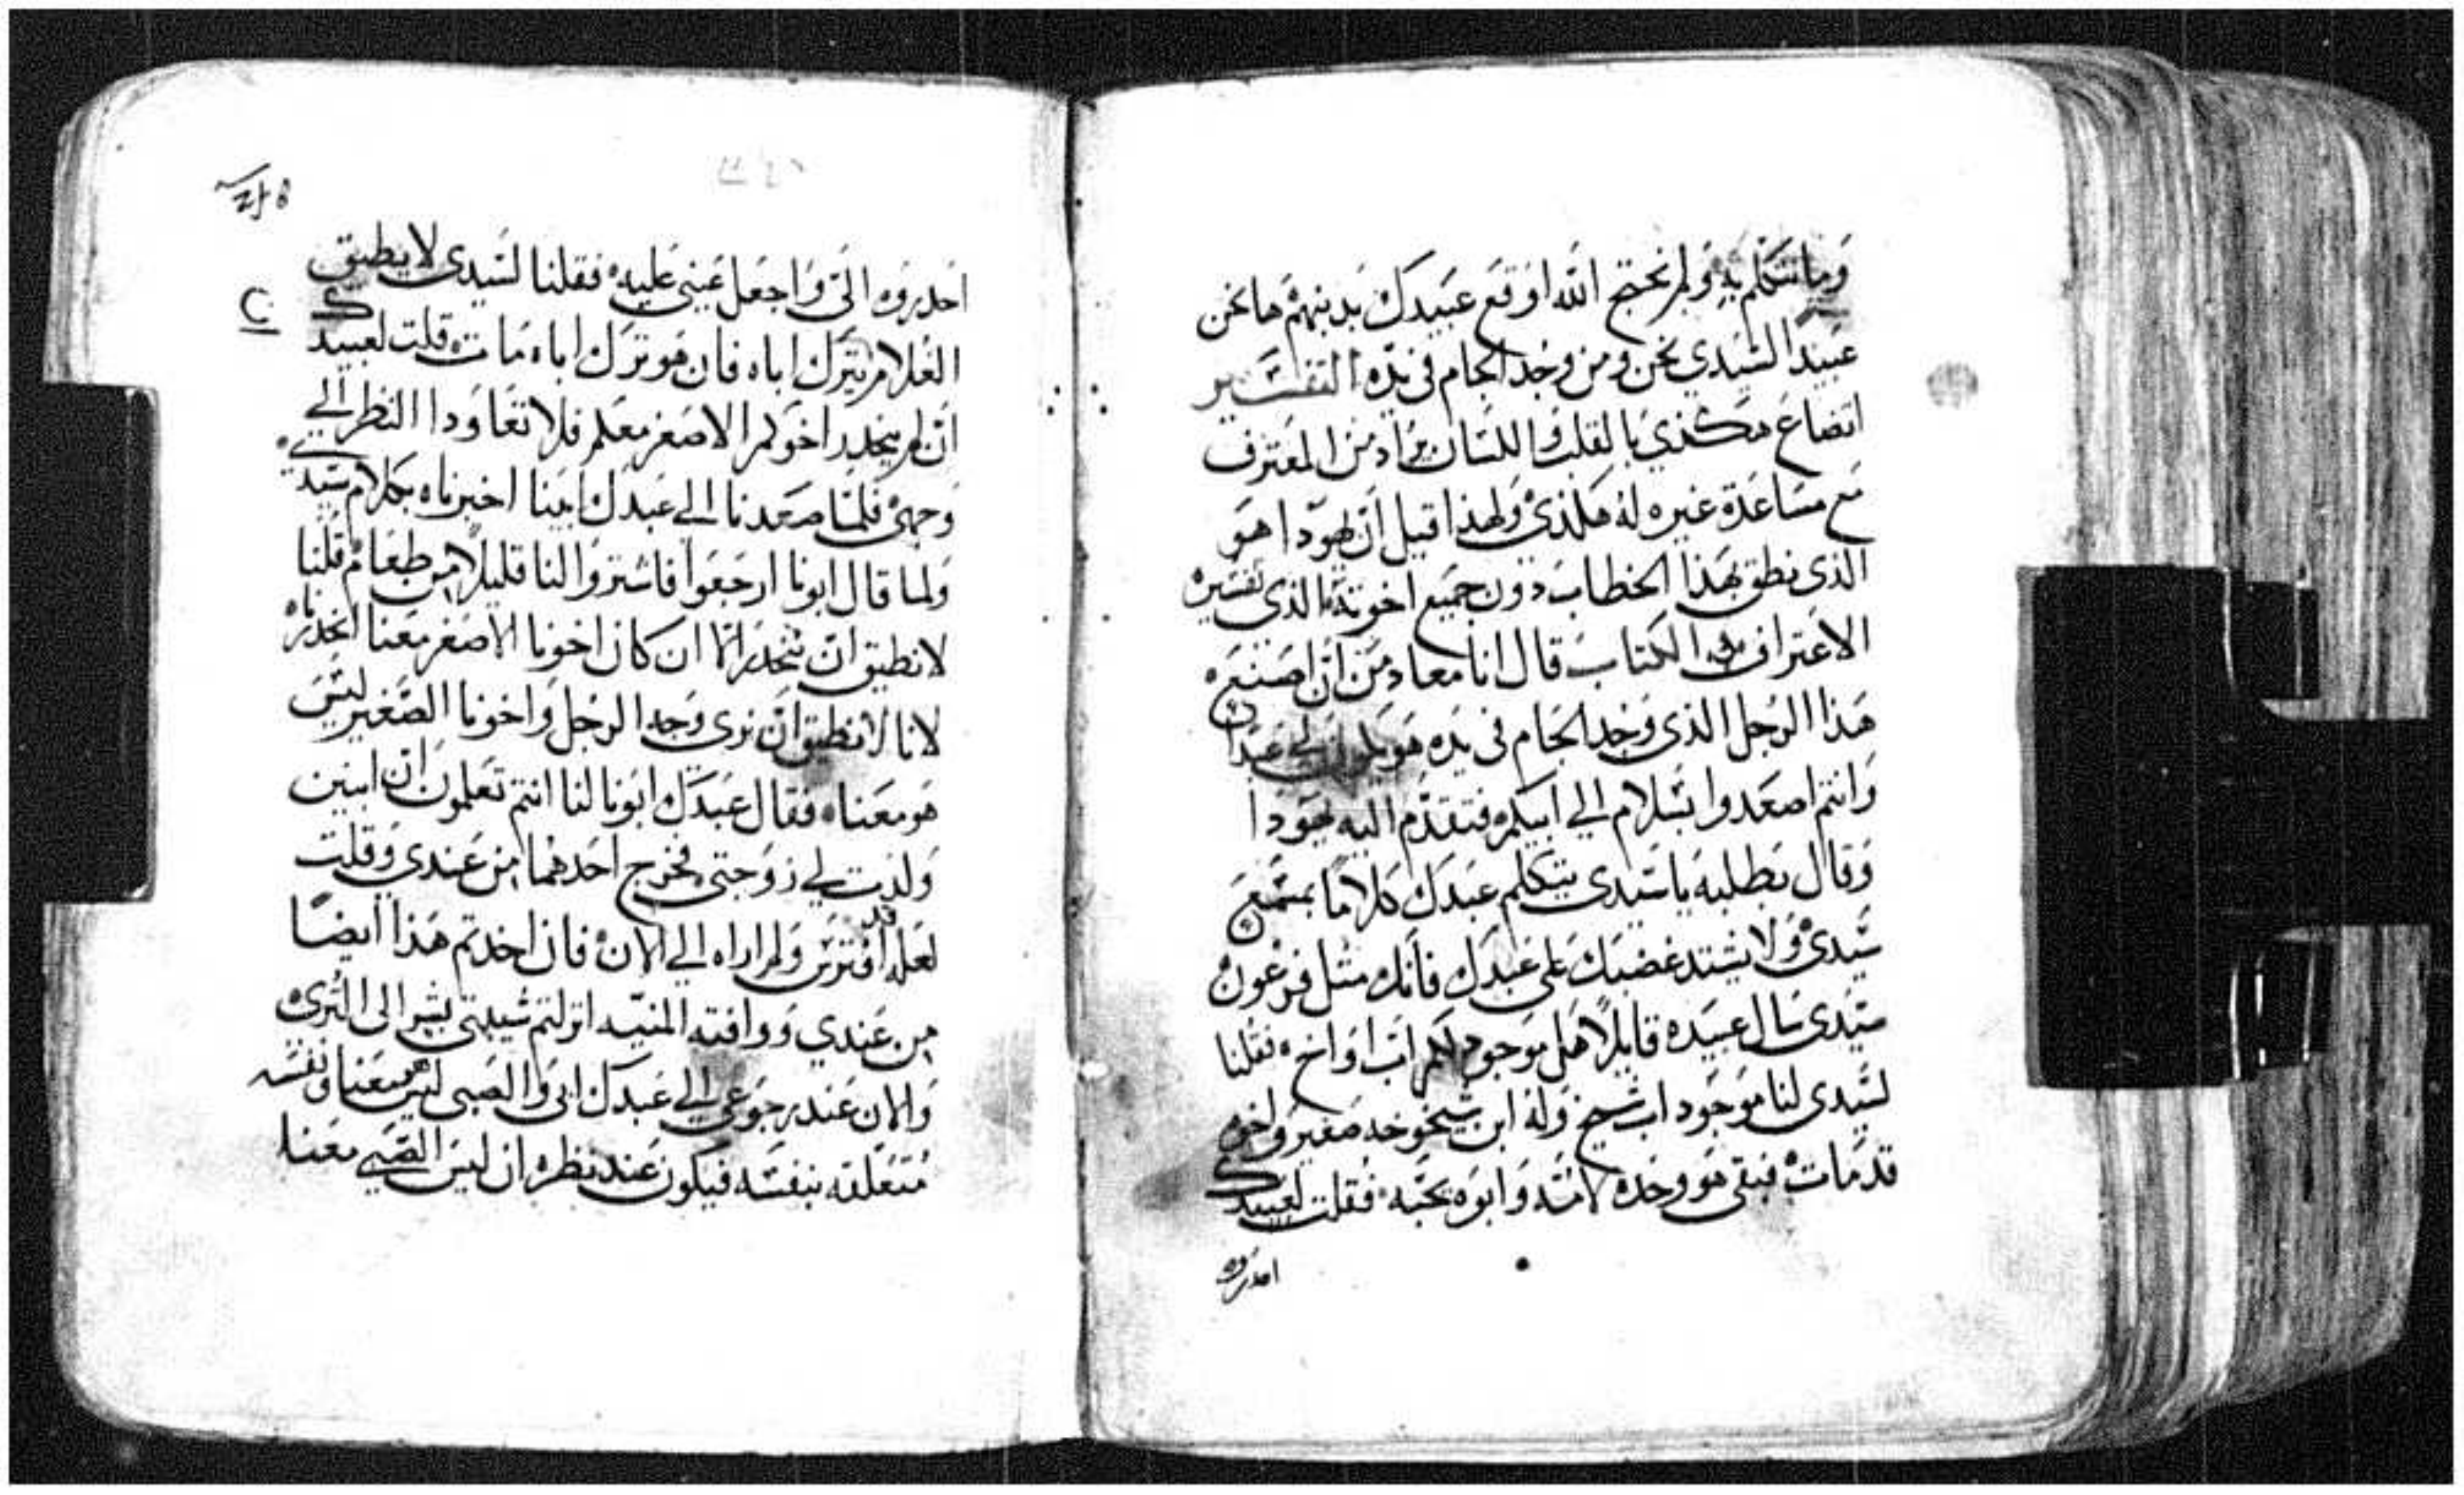 وما نتكلم به ولم نحتج الله اوقع عبيدك بدينهم ها نحن
عبيدًا لسيدي نحن ومن وجد الجام في يده التفسير
اتضاع هكذي بالقلب واللسان يراد من المعترف
مع مساعدة غيره له هكذي ولهذا قيل ان يهودا هو
الذي نطق بهذا الخطاب دون جميع اخوته الذي تفسيره
الاعتراف الكتاب قال انا معاد من ان اصنع
هذا الرجل الذي وجد الجام في يده هو يكون لي عبدًا
وانتم اصعدوا بسلام الي ابيكم فتقدم اليه يهودا
وقال بطلبه يا سيدي يتكلم عبدك كلامًا بمسمع
سيدي ولا يشتد غضبك علي عبدك فانك مثل فرعون
سيدي سال عبيده قايلًا هل موجود لكم اب او اخ فقلنا
لسيدي لنا موجود اب شيخ وله ابن شيخوخه صغير واخوه
قد مات فبقي هو وحده لامه وابوه يحبه فقلت لعبيدك
احدروه
احدروه الي واجعل عيني عليه فقلنا لسيدي لا يطيق
الغلام يترك اباه فان هو ترك اباه مات قلت لعبيدك
ان لم ينحدر اخوكم الاصغر معكم فلا تعاودا النظر الي
وجهي فلما صعدنا الي عبدك ابينا اخبرناه بكلام سيدي
ولما قال ابونا ارجعوا فاشتروا لنا قليلًا من طعام قلنا
لا نطيق ان ننحدر الا ان كان اخونا الاصغر معنا انحدرنا
لانا لا نطيق ان نري وجه الرجل واخونا الصغير ليس
هو معنا فقال عبدك ابونا لنا انتم تعلمون ان ابنين
ولدت لي زوجتي فخرج احدهما من عندي وقلت
لعله قد افترس ولم اراه الي الان فان اخدتم هذا ايضًا
من عندي ووافته المنيه انزلتم شيبتي بشر الى الثرى
والان عند رجوعي الي عبدك ابي والصبي ليس معنا ونفسه
متعلقه بنفسه فيكون عند نظره ان ليس الصبي معنا